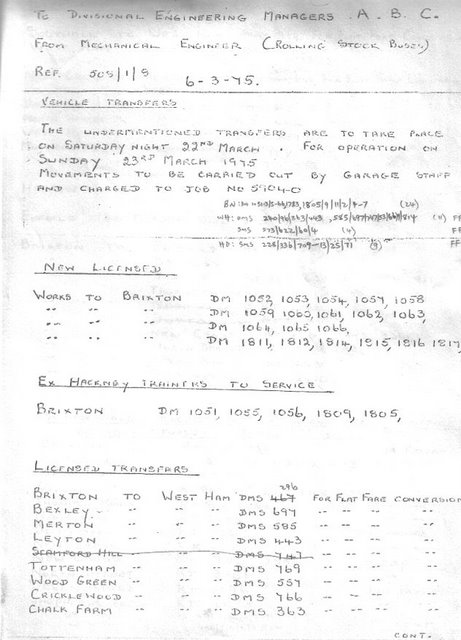 To Divisional Engineering Managers. A. B. C.
From Mechanical Engineer (Rolling Stock Buses)
Ref. 505/1/8
6-3-75.
Vehicle Transfers
The undermentioned transfers are to take place
on Saturday night 22nd March. For operation on
Sunday 23rd March 1975
Movements to be carried out by garage staff
and charged to Job No 5904-0
(24)
WH: DMS (11) FF
DMS 573/622/60/4 (4) FF
HD: DMS 228/336/709-13/25/71 (9) FF
New Licensed
Works to Brixton DM 1052, 1053, 1054, 1057, 1058
" " " DM 1059 1060, 1061, 1062, 1063,
" " " DM 1064, 1065 1066,
" " " DM 1811, 1812, 1814, 1815, 1816 1817,
Ex Hackney Trainers to Service
Brixton DM 1051, 1055, 1056, 1809, 1805,
Licensed Transfers
296
Brixton to West Ham DMS 467 for Flat Fare conversion
Bexley - " " " DMS 697 " " " "
Merton " " " DMS 585 " " " "
Leyton " " " DMS 443 " " " "
Stamford Hill " " " DMS 747 " " " "
Tottenham " " " DMS 769 " " " "
Wood Green " " " DMS 557 " " " "
Cricklewood " " " DMS 766 " " " "
Chalk Farm " " " DMS 363 " " " "
cont.